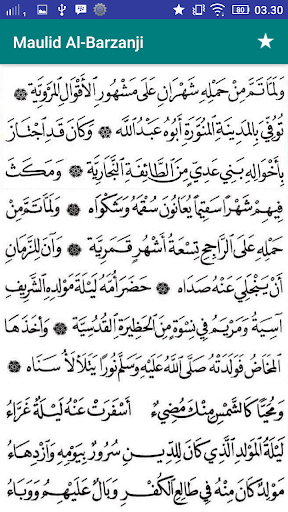 03.30
Maulid Al-Barzanji
وَلَمَّا تَمَّ مِنْ حَمْلِهِ شَهْرَانِ عَلَى مَشْهُورِ الْأَقْوَالِ الْمَرْوِيَّةِ
تُوُفِّيَ بِالْمَدِينَةِ الْمُنَوَّرَةِ أَبُوهُ عَبْدُ اللَّهِ وَكَانَ قَدِ اجْتَازَ
بِأَخْوَالِهِ بَنِي عَدِيٍّ مِنَ الطَّائِفَةِ النَّجَّارِيَّةِ وَمَكَثَ
فِيهِمْ شَهْرًا سَقِيمًا يُعَانُونَ سُقْمَهُ وَشَكْوَاهُ وَلَمَّا تَمَّ مِنْ
حَمْلِهِ عَلَى الرَّاجِحِ تِسْعَةُ أَشْهُرٍ قَمَرِيَّةٍ وَآنَ لِلزَّمَانِ
أَنْ يَنْجَلِيَ عَنْهُ صَدَاهُ حَضَرَ أُمَّهُ لَيْلَةَ مَوْلِدِهِ الشَّرِيفِ
آسِيَةُ وَمَرْيَمُ فِي نِسْوَةٍ مِنَ الْحَظِيرَةِ الْقُدْسِيَّةِ وَأَخَذَهَا
الْمَخَاضُ فَوَلَدَتْهُ صَلَّى اللَّهُ عَلَيْهِ وَسَلَّمَ نُورًا يَتَلَأْلَأُ سَنَاهُ
وَمُحَيًّا كَالشَّمْسِ مِنْكَ مُضِيءٌ أَسْفَرَتْ عَنْهُ لَيْلَةٌ غَرَّاءُ
لَيْلَةُ الْمَوْلِدِ الَّذِي كَانَ لِلدِّينِ سُرُورٌ بِيَوْمِهِ وَازْدِهَاءُ
مَوْلِدٌ كَانَ مِنْهُ فِي طَالِعِ الْكُفْرِ وَبَالٌ عَلَيْهِمْ وَوَبَاءُ